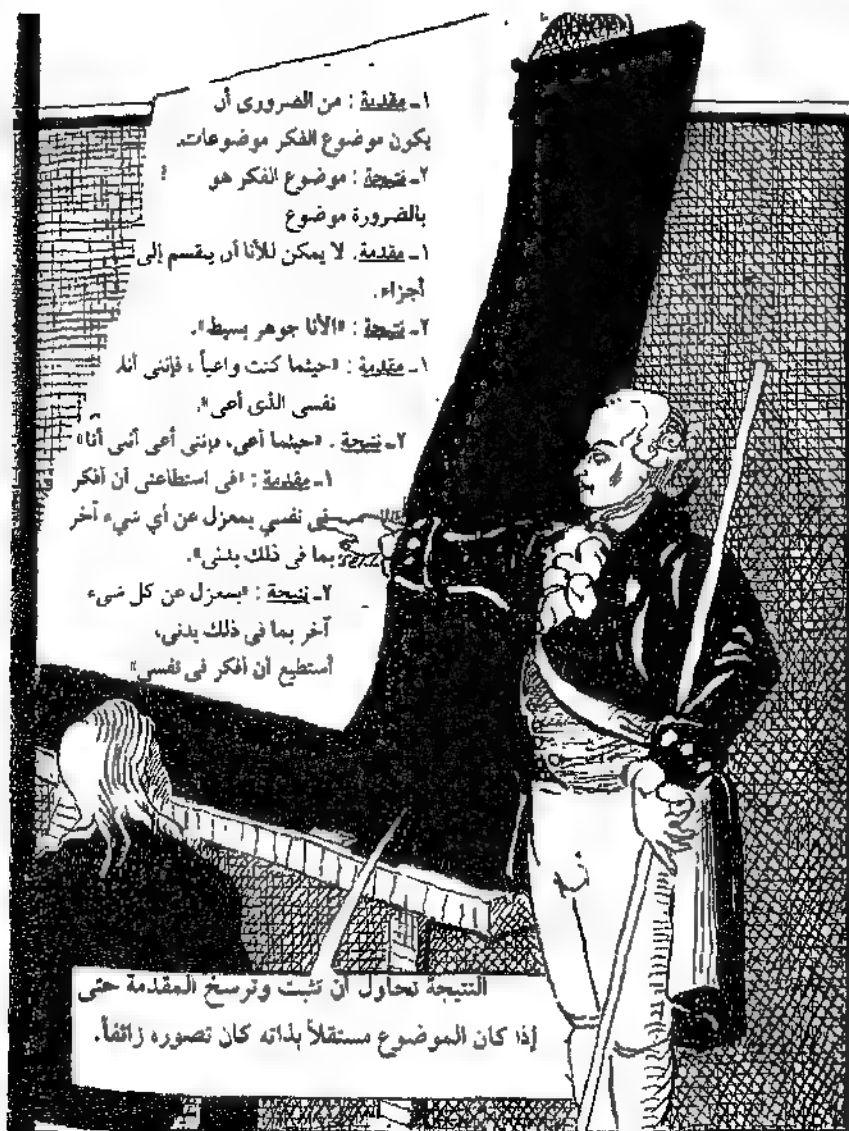 ١ـ مقدمة : من الضرورى أن
يكون موضوع الفكر موضوعات.
٢ـ نتيجة : موضوع الفكر هو
بالضرورة موضوع
١ـ مقدمة. لا يمكن للأنا أن ينقسم إلى
أجزاء.
٢ـ نتيجة : «الأنا جوهر بسيط».
١ـ مقدمة : «حيثما كنت واعياً ، فإننى أنا.
نفسى الذى أعى».
٢ـ نتيجة . «حيثما أعى، فإننى أعى أننى أنا»
١ـ مقدمة : «فى استطاعتى أن أفكر
فى نفسي بمعزل عن أي شيء آخر
بما فى ذلك بدنى».
٢ـ نتيجة : «بمعزل عن كل شىء
آخر بما فى ذلك بدنى،
أستطيع أن أفكر فى نفسى»
النتيجة تحاول أن تثبت وترسخ المقدمة حتى
إذا كان الموضوع مستقلاً بذاته كان تصوره زائفاً.